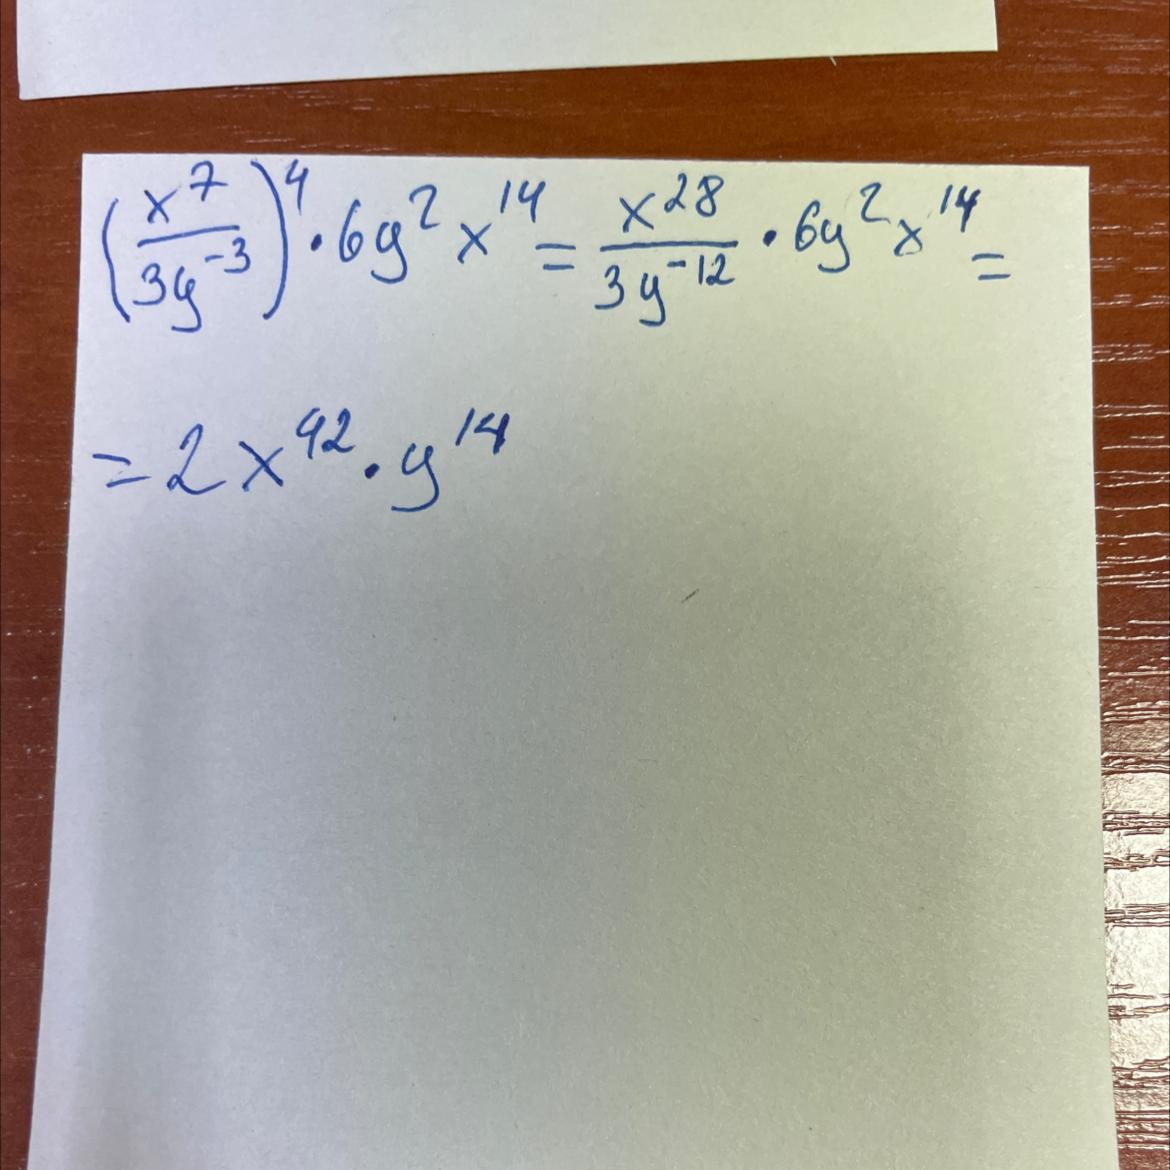 (x^7/3y^-3)^4 · 6y^2 x^14 = x^28/3y^-12 · 6y^2 x^14 =
= 2x^42 · y^14